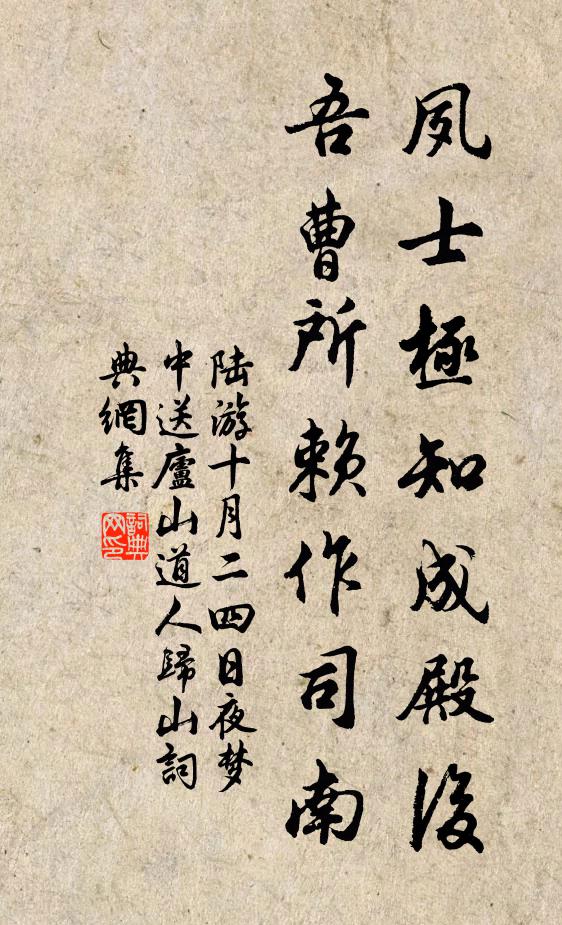 夙士極知成殿後
吾曹所賴作司南
陆游十月二四日夜梦
中送廬山道人歸山詞
典網集
詞典网印